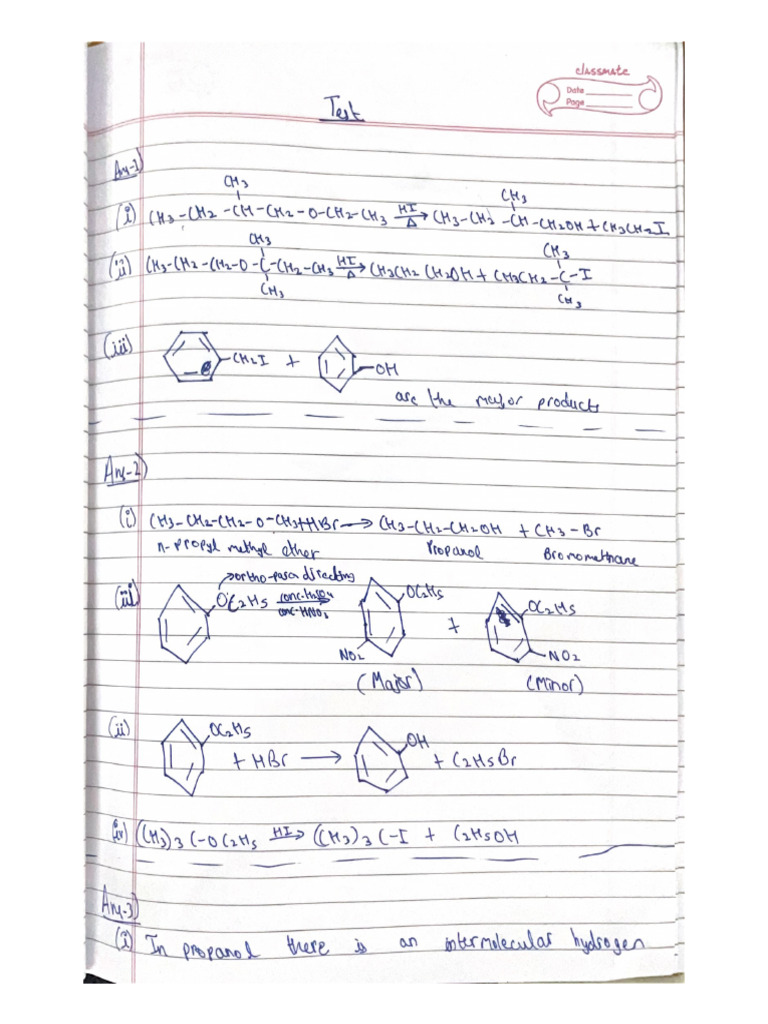 classmate
Date
Page
Test
Ans-1)
CH3 CH3
(i) CH3-CH2-CH-CH2-O-CH2-CH3 HI/Δ → CH3-CH2-CH-CH2OH + CH3CH2I
CH3 CH3
(ii) CH3-CH2-CH2-O-C-CH2-CH3 HI/Δ → CH3CH2CH2OH + CH3CH2-C-I
CH3 CH3
(iii) CH2I + OH
are the major products
Ans-2)
(i) CH3-CH2-CH2-O-CH3+HBr → CH3-CH2-CH2OH + CH3-Br
n-propyl methyl ether Propanol Bromomethane
→ortho-para directing
(iii) OC2H5 conc-H2SO4 conc-HNO3 → OC2H5 + OC2H5
NO2 NO2
(Major) (Minor)
(ii) OC2H5 + HBr → OH + C2H5Br
(iv) (CH3)3C-OC2H5 HI → (CH3)3C-I + C2H5OH
Ans-3)
(i) In propanol there is an intermolecular hydrogen